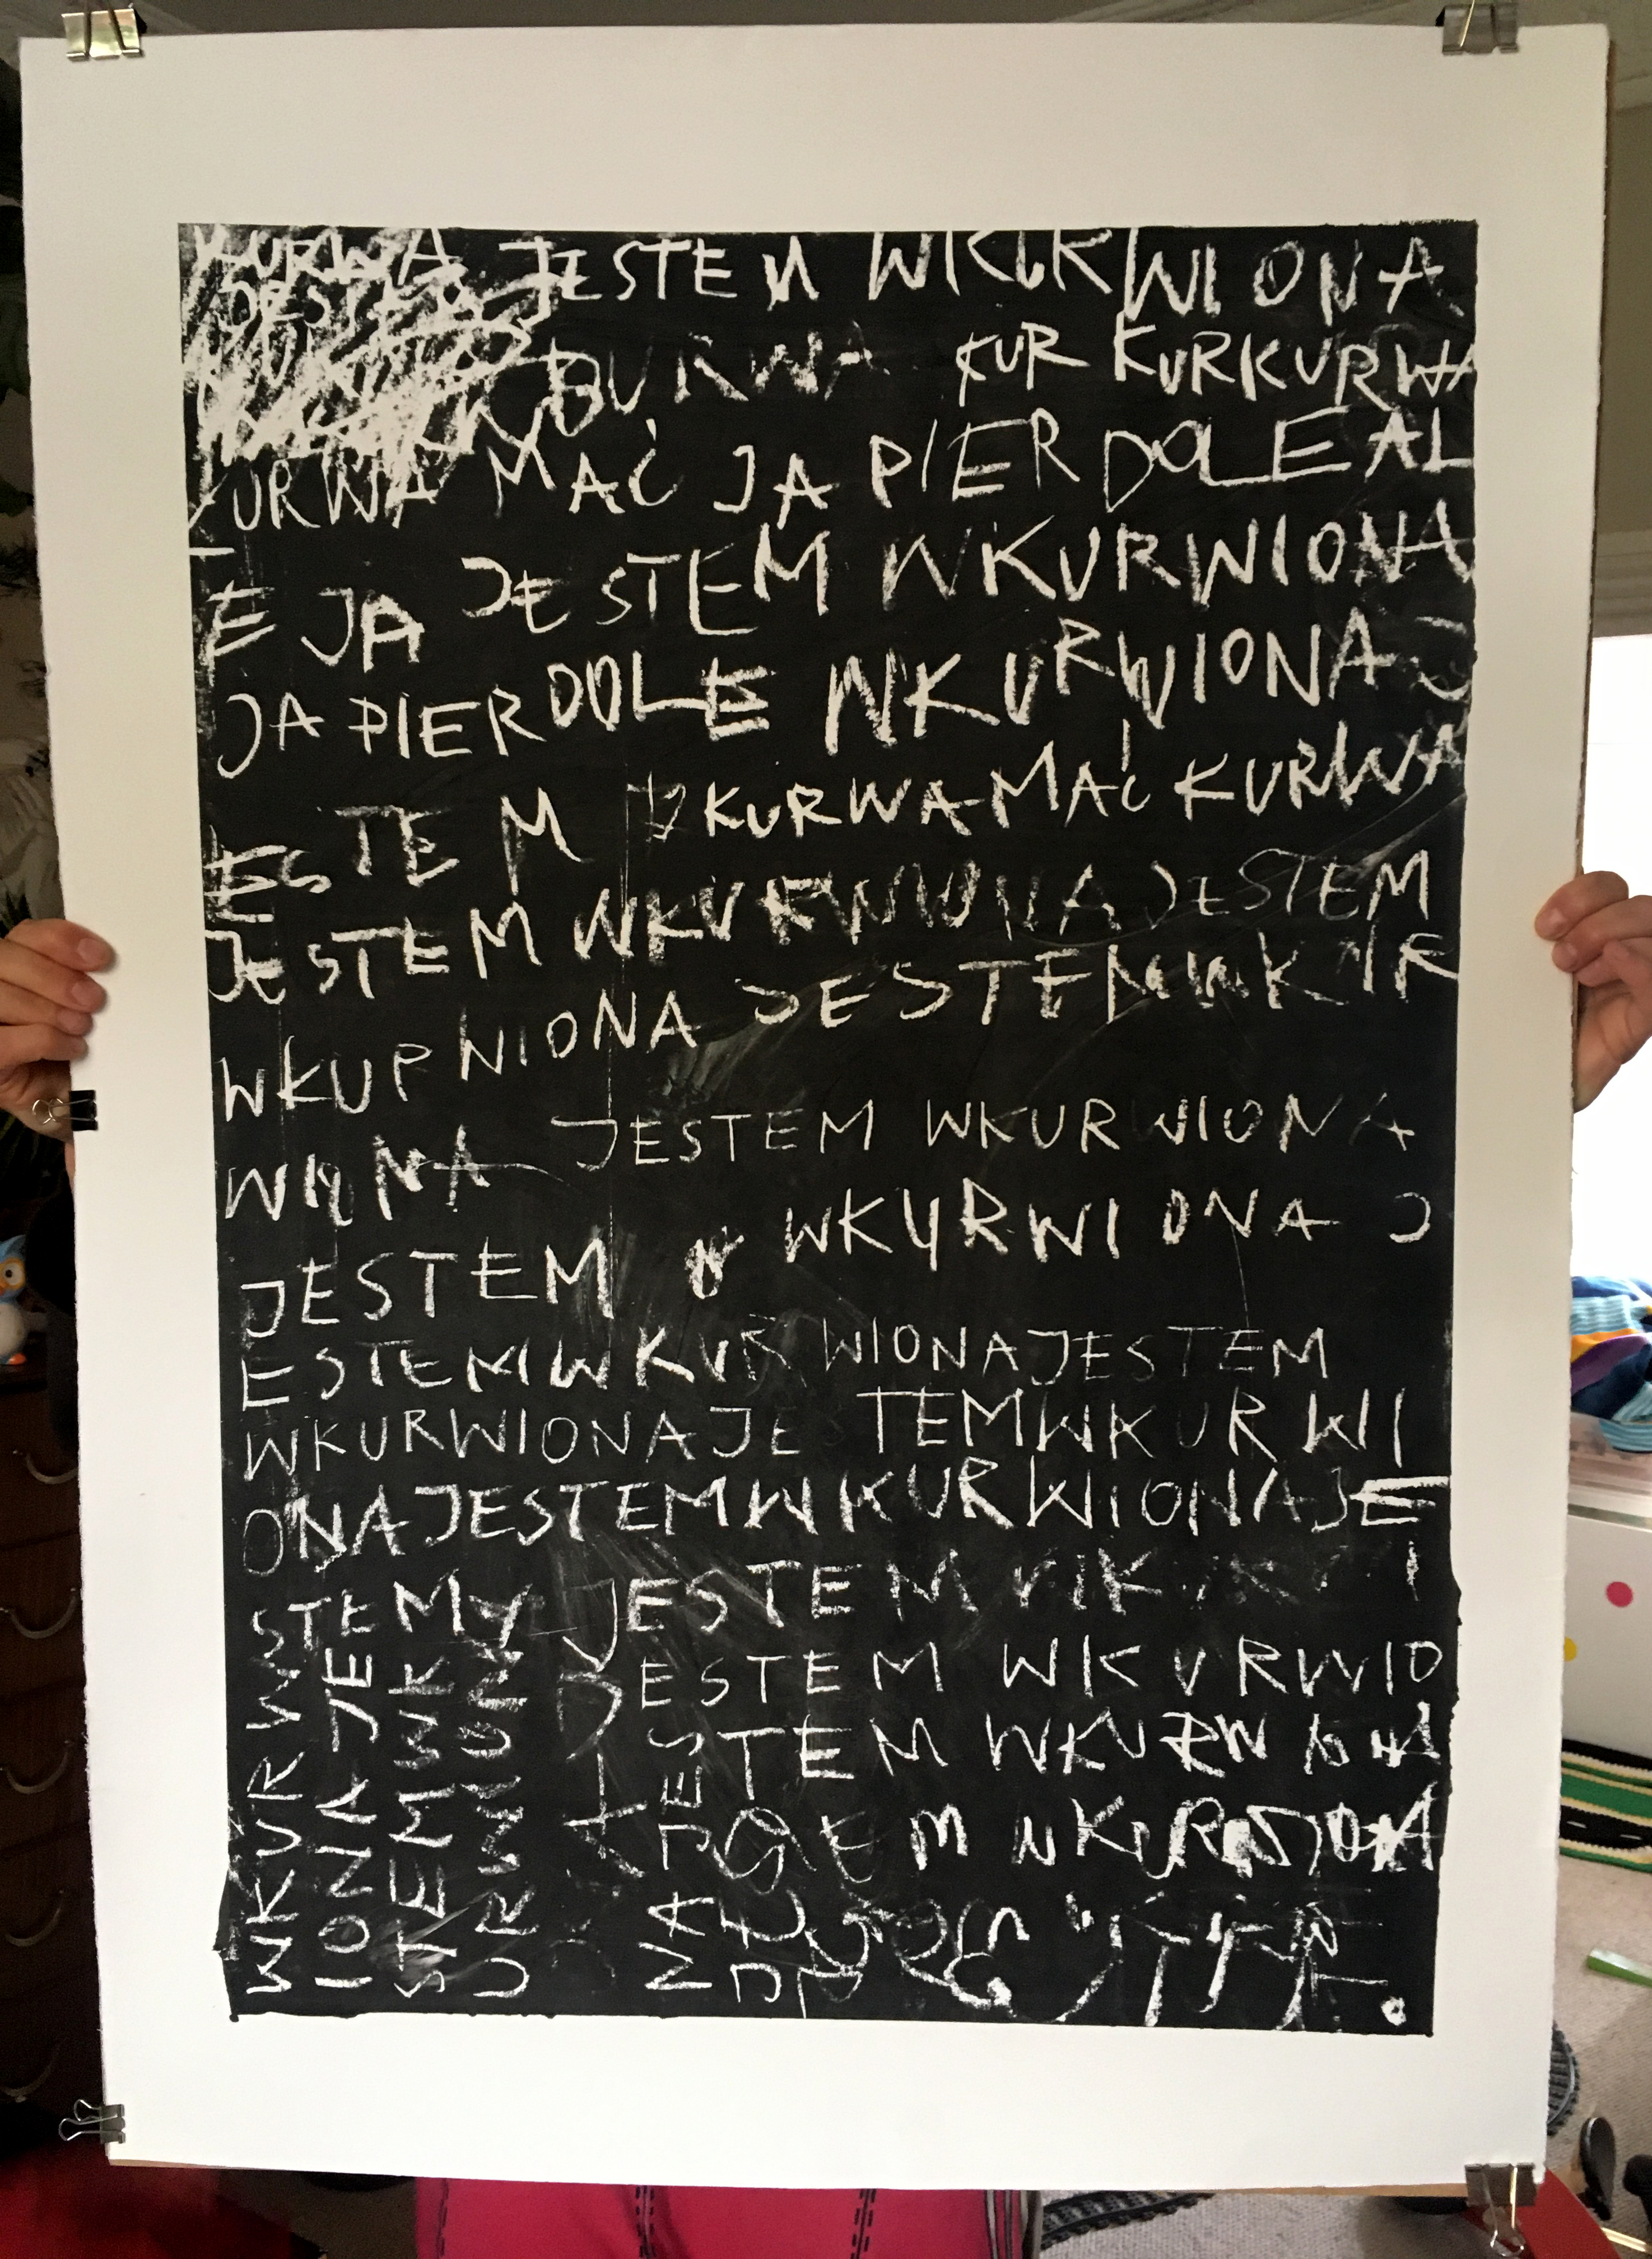 KURWA JESTEM WKURWIONA
JESTEM BURWA KUR KURKURWA
KURWA MAĆ JA PIERDOLE AL
E JA JESTEM WKURWIONA
JA PIERDOLE WKURWIONA J
ESTEM KURWA MAĆ KURWA
JESTEM WKURWIONA JESTEM
WKURWIONA JESTEM WKUR
WIONA JESTEM WKURWIONA
JESTEM WKURWIONA J
ESTEM WKURWIONA JESTEM
WKURWIONA JE TEM WKURWI
ONA JESTEM WKURWIONA JE
STEM JESTEM
JESTEM WKURWIO
TEM WKURWIONA
EM WKURWIONA
WKURW
IONA JE
STEM WK
URWIONA
JES
NA